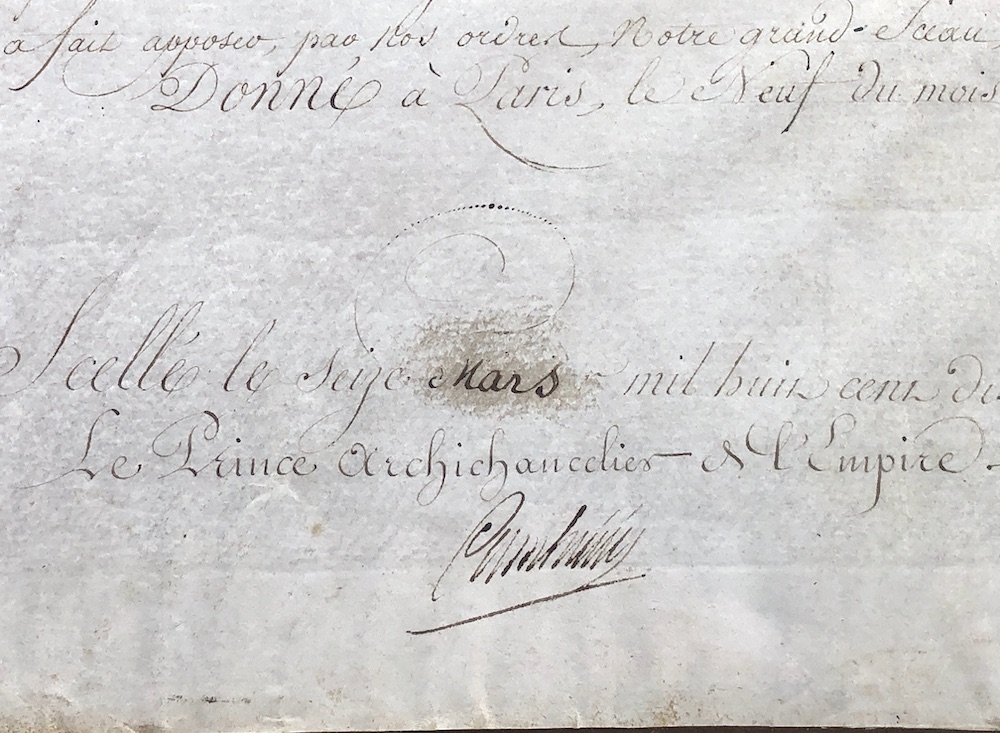 a fait apposer, par nos ordres, Notre grand-Sceau
Donné à Paris, le Neuf du mois
Scellé le seize Mars mil huit cent di
Le Prince Archichancelier de l'Empire